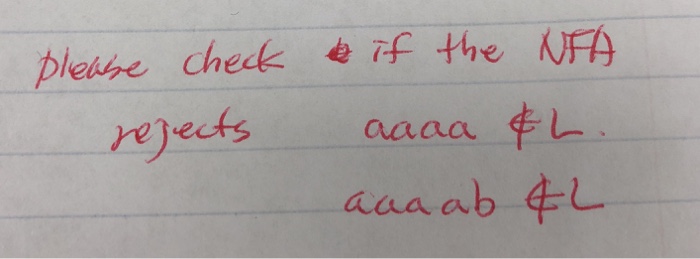 please check if the NFA
rejects aaaa ∉ L.
aaaab ∉ L